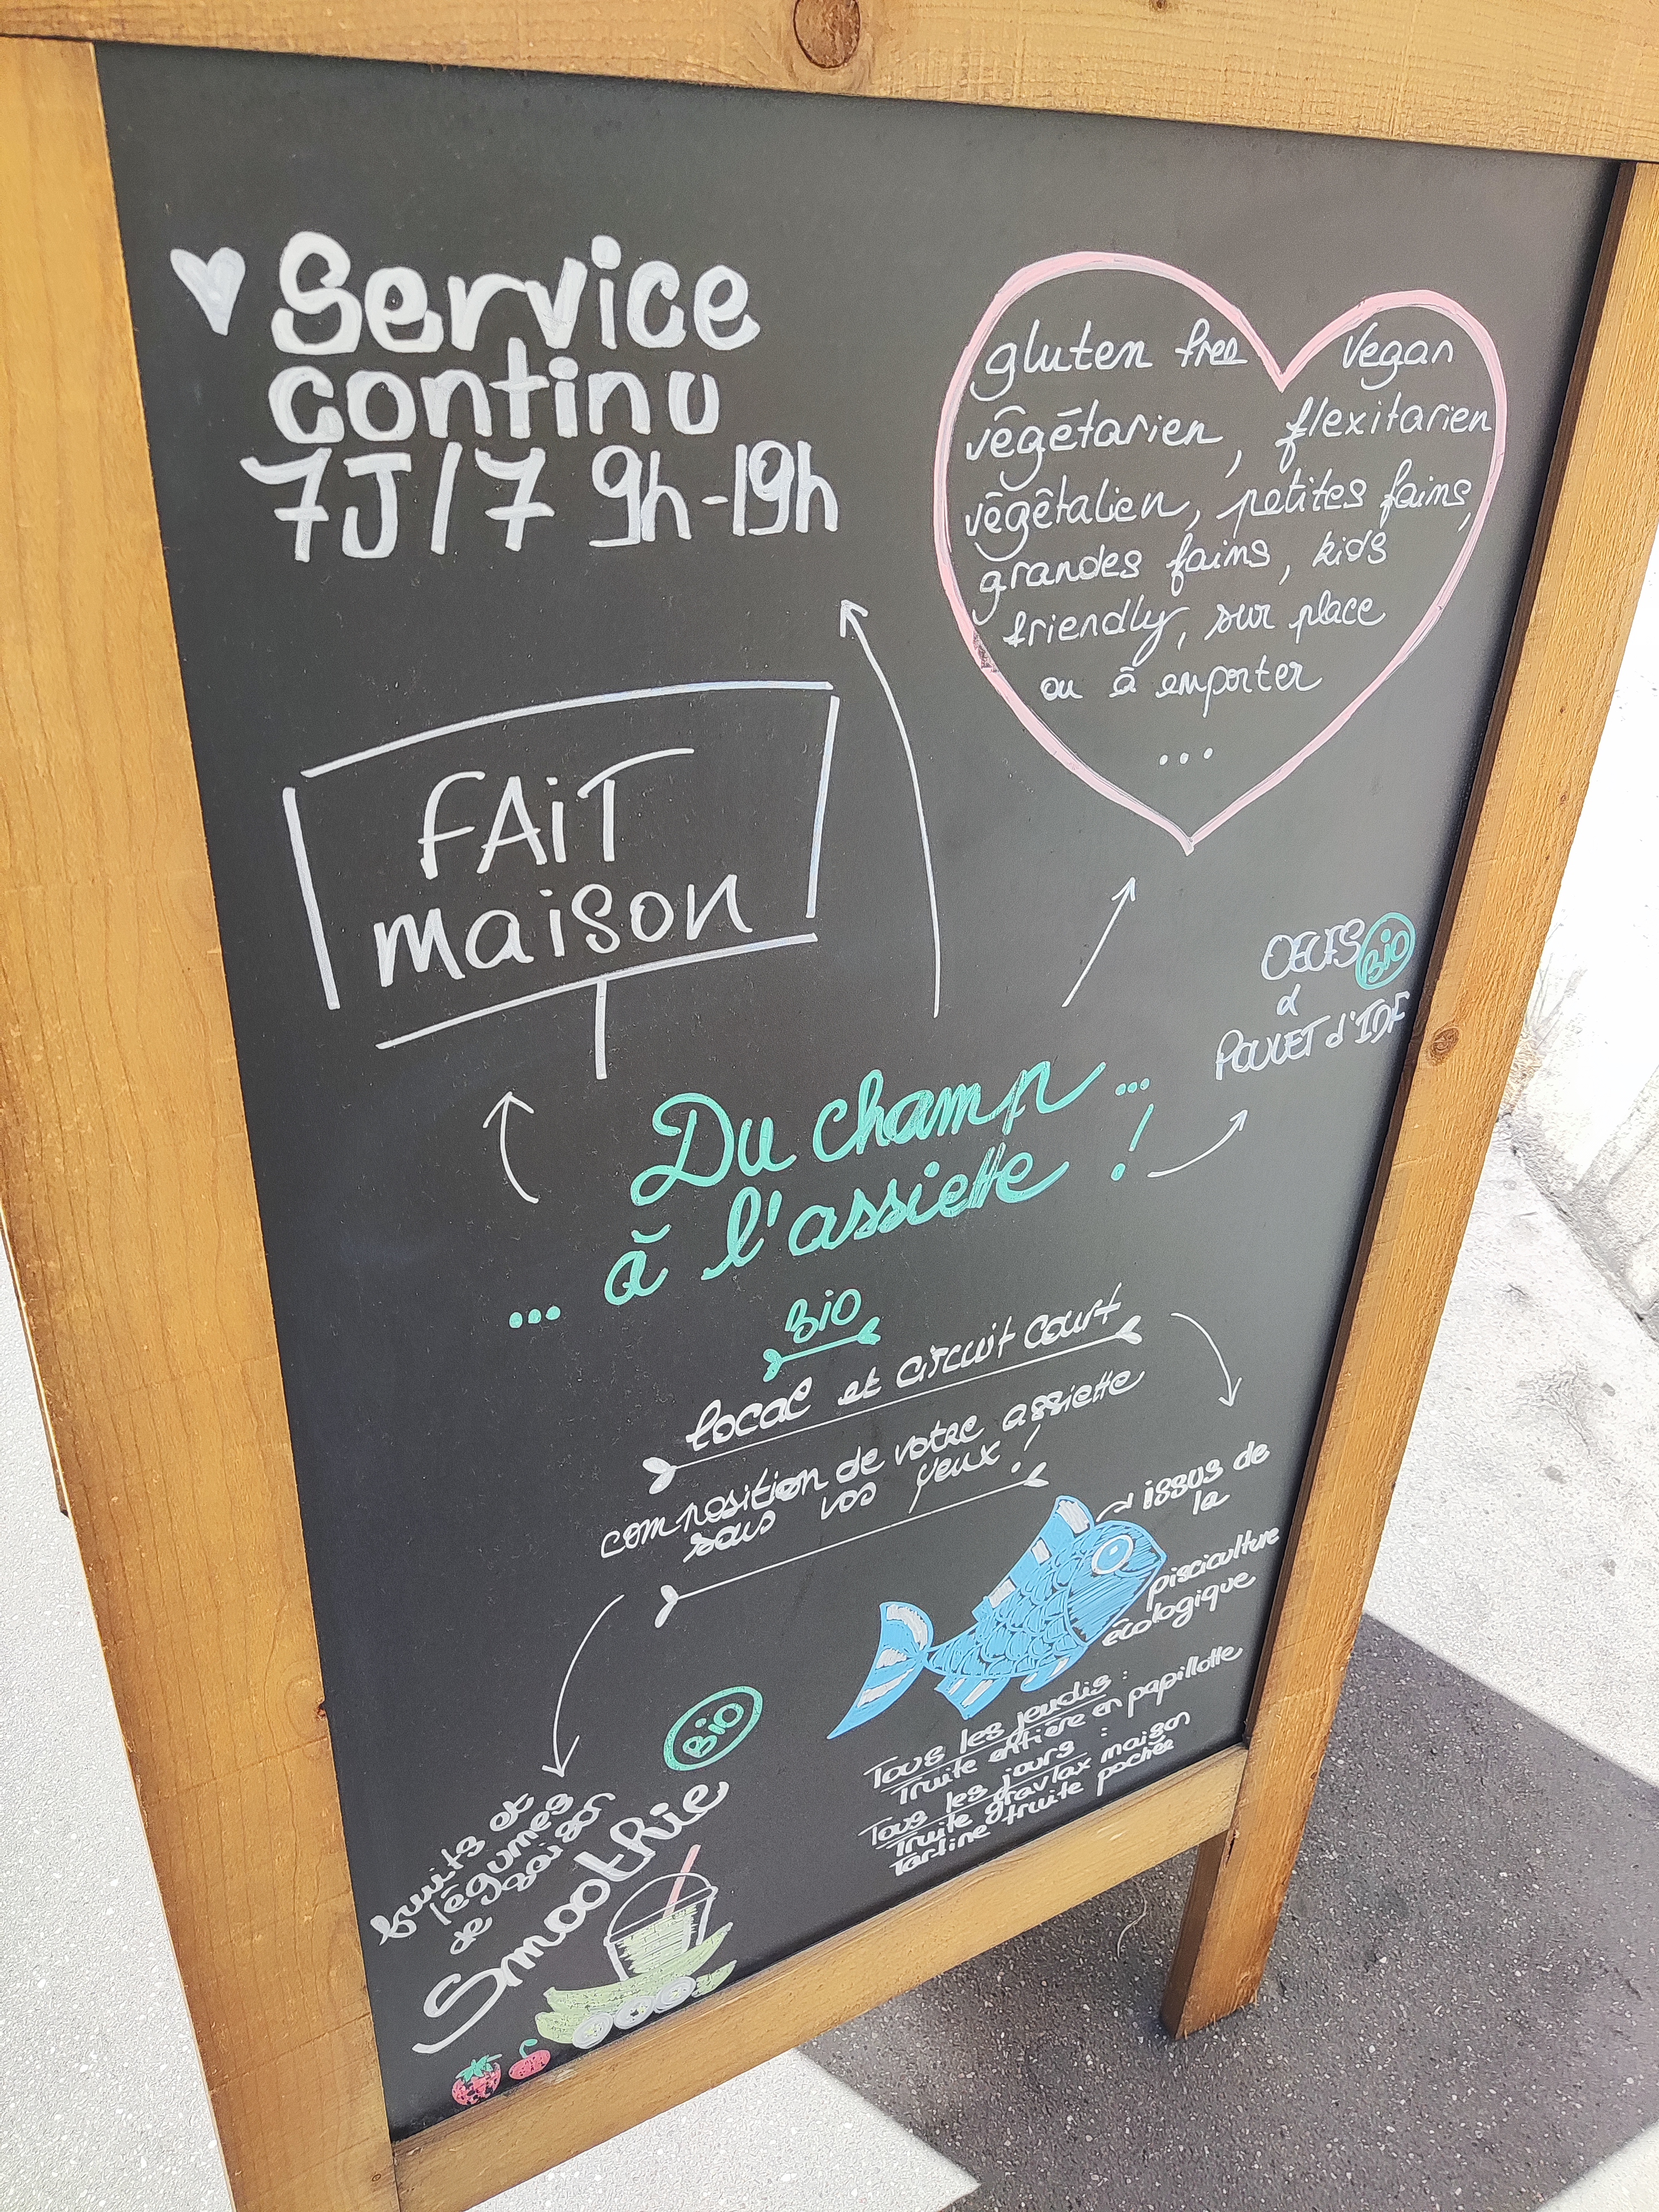 Service
continu
7J/7 9h-19h
gluten free vegan
végétarien, flexitarien
végétalien, petites faims,
grandes faims, kids
friendly, sur place
ou à emporter
...
FAiT
maison
OEUFS BiO
&
POULET d'IDF
Du champ...
... à l'assiette !
BiO
local et circuit court
composition de votre assiette
sous vos yeux !
issus de
la
pisciculture
écologique
Tous les jeudis :
Truite entière en papillotte
Tous les jours :
Truite gravlax maison
Tartine truite pochée
fruits et
légumes
de saison
BiO
Smoothie